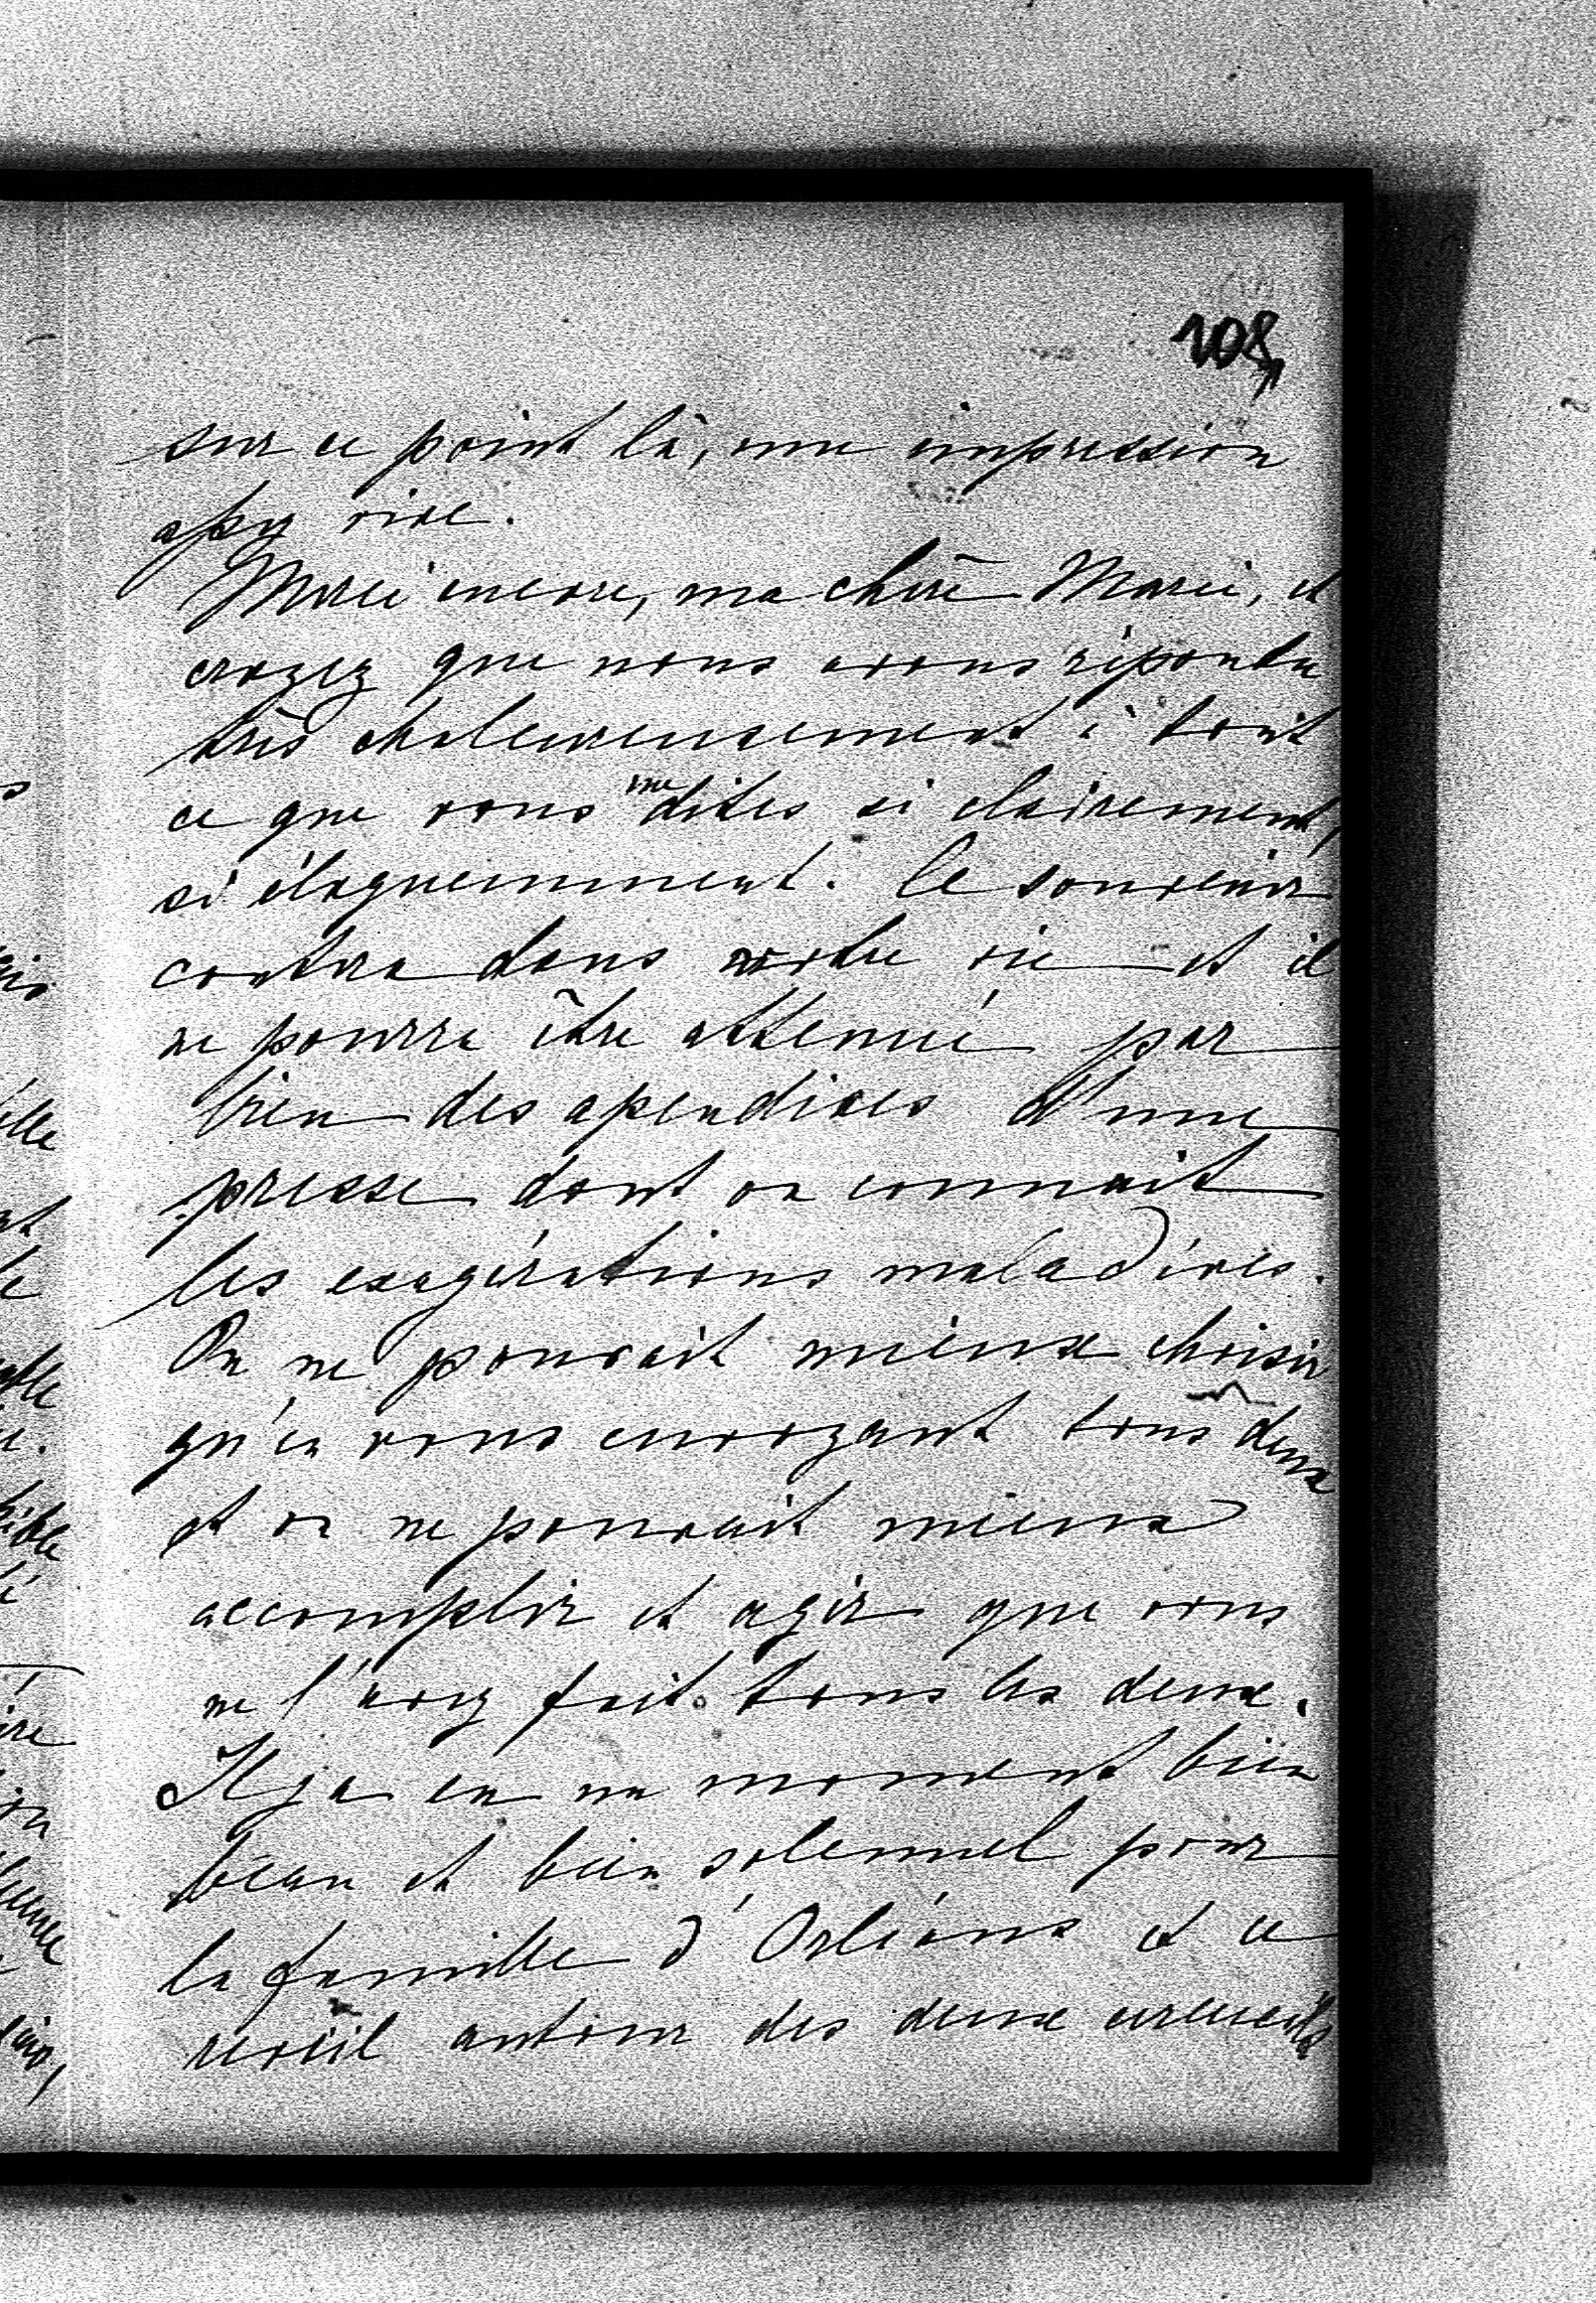 108
sur ce point là, une impression
assez vive.
Merci encore, ma chère Marie, et
croyez que nous avons répondu
très chaleureusement à tout
ce que vous me dites si clairement,
si éloquemment. Ce souvenir
contera dans notre vie et il
ne pourra être attenué par
bien des apendices d'une
presse dont on connait
les exagérations maladives.
On ne pouvait mieux choisir
qu'en vous envoyant tous deux
et on ne pouvait mieux
accomplir et agir que vous
ne l'avez fait tous les deux.
Il y a eu un moment bien
beau et bien solennel pour
la famille d'Orléans et ce
réveil autour des deux cercueils